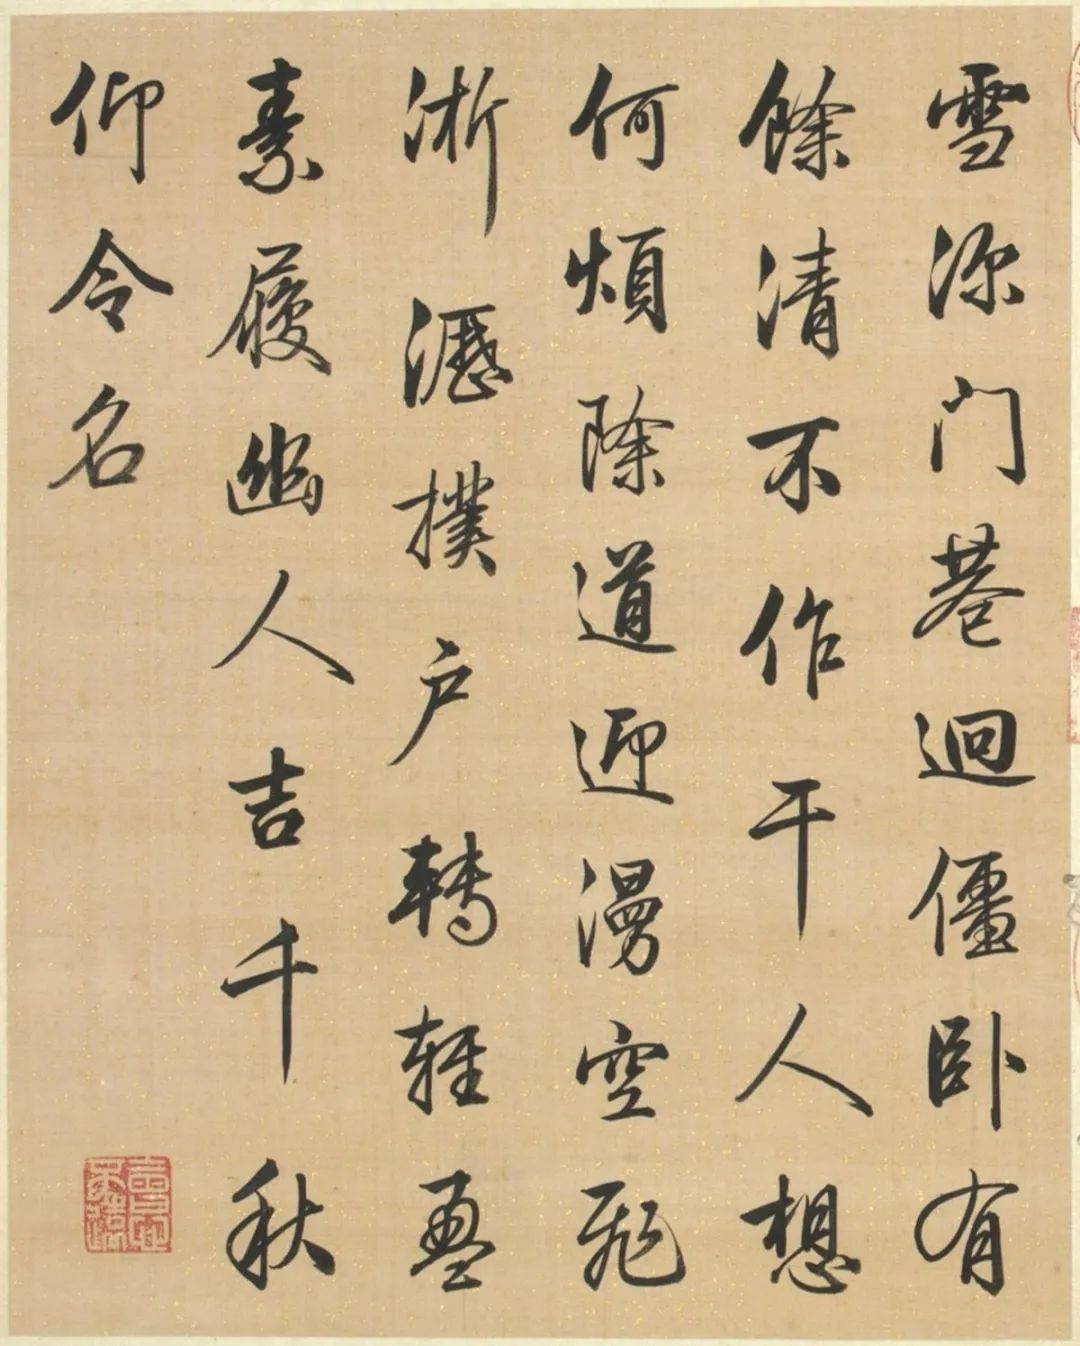 雪深门巷迥僵卧有
餘清不作干人想
何煩除道迎漫空飛
淅瀝撲户轉輕盈
素履幽人吉千秋
仰令名